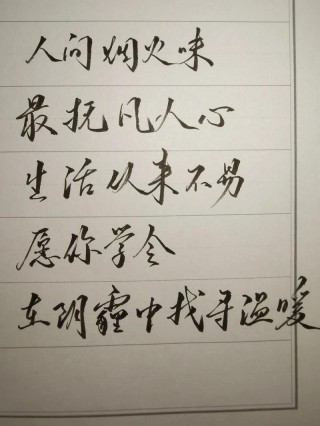 人间烟火味
最抚凡人心
生活从来不易
愿你学会
在阴霾中找寻温暖